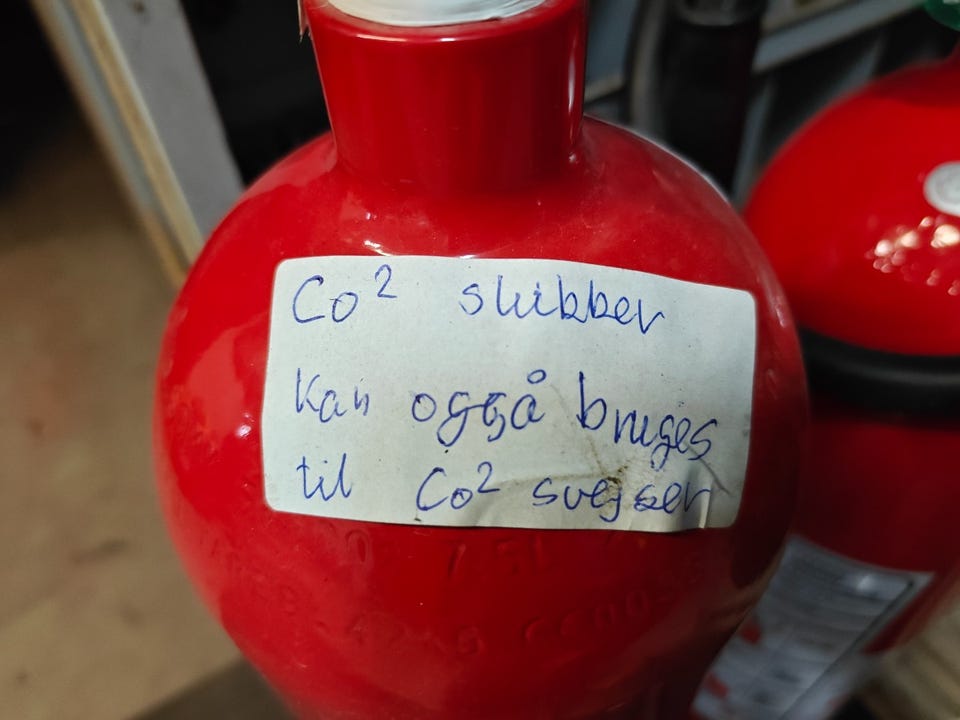 Co² slukker
Kan også bruges
til Co² svejser
7.5L